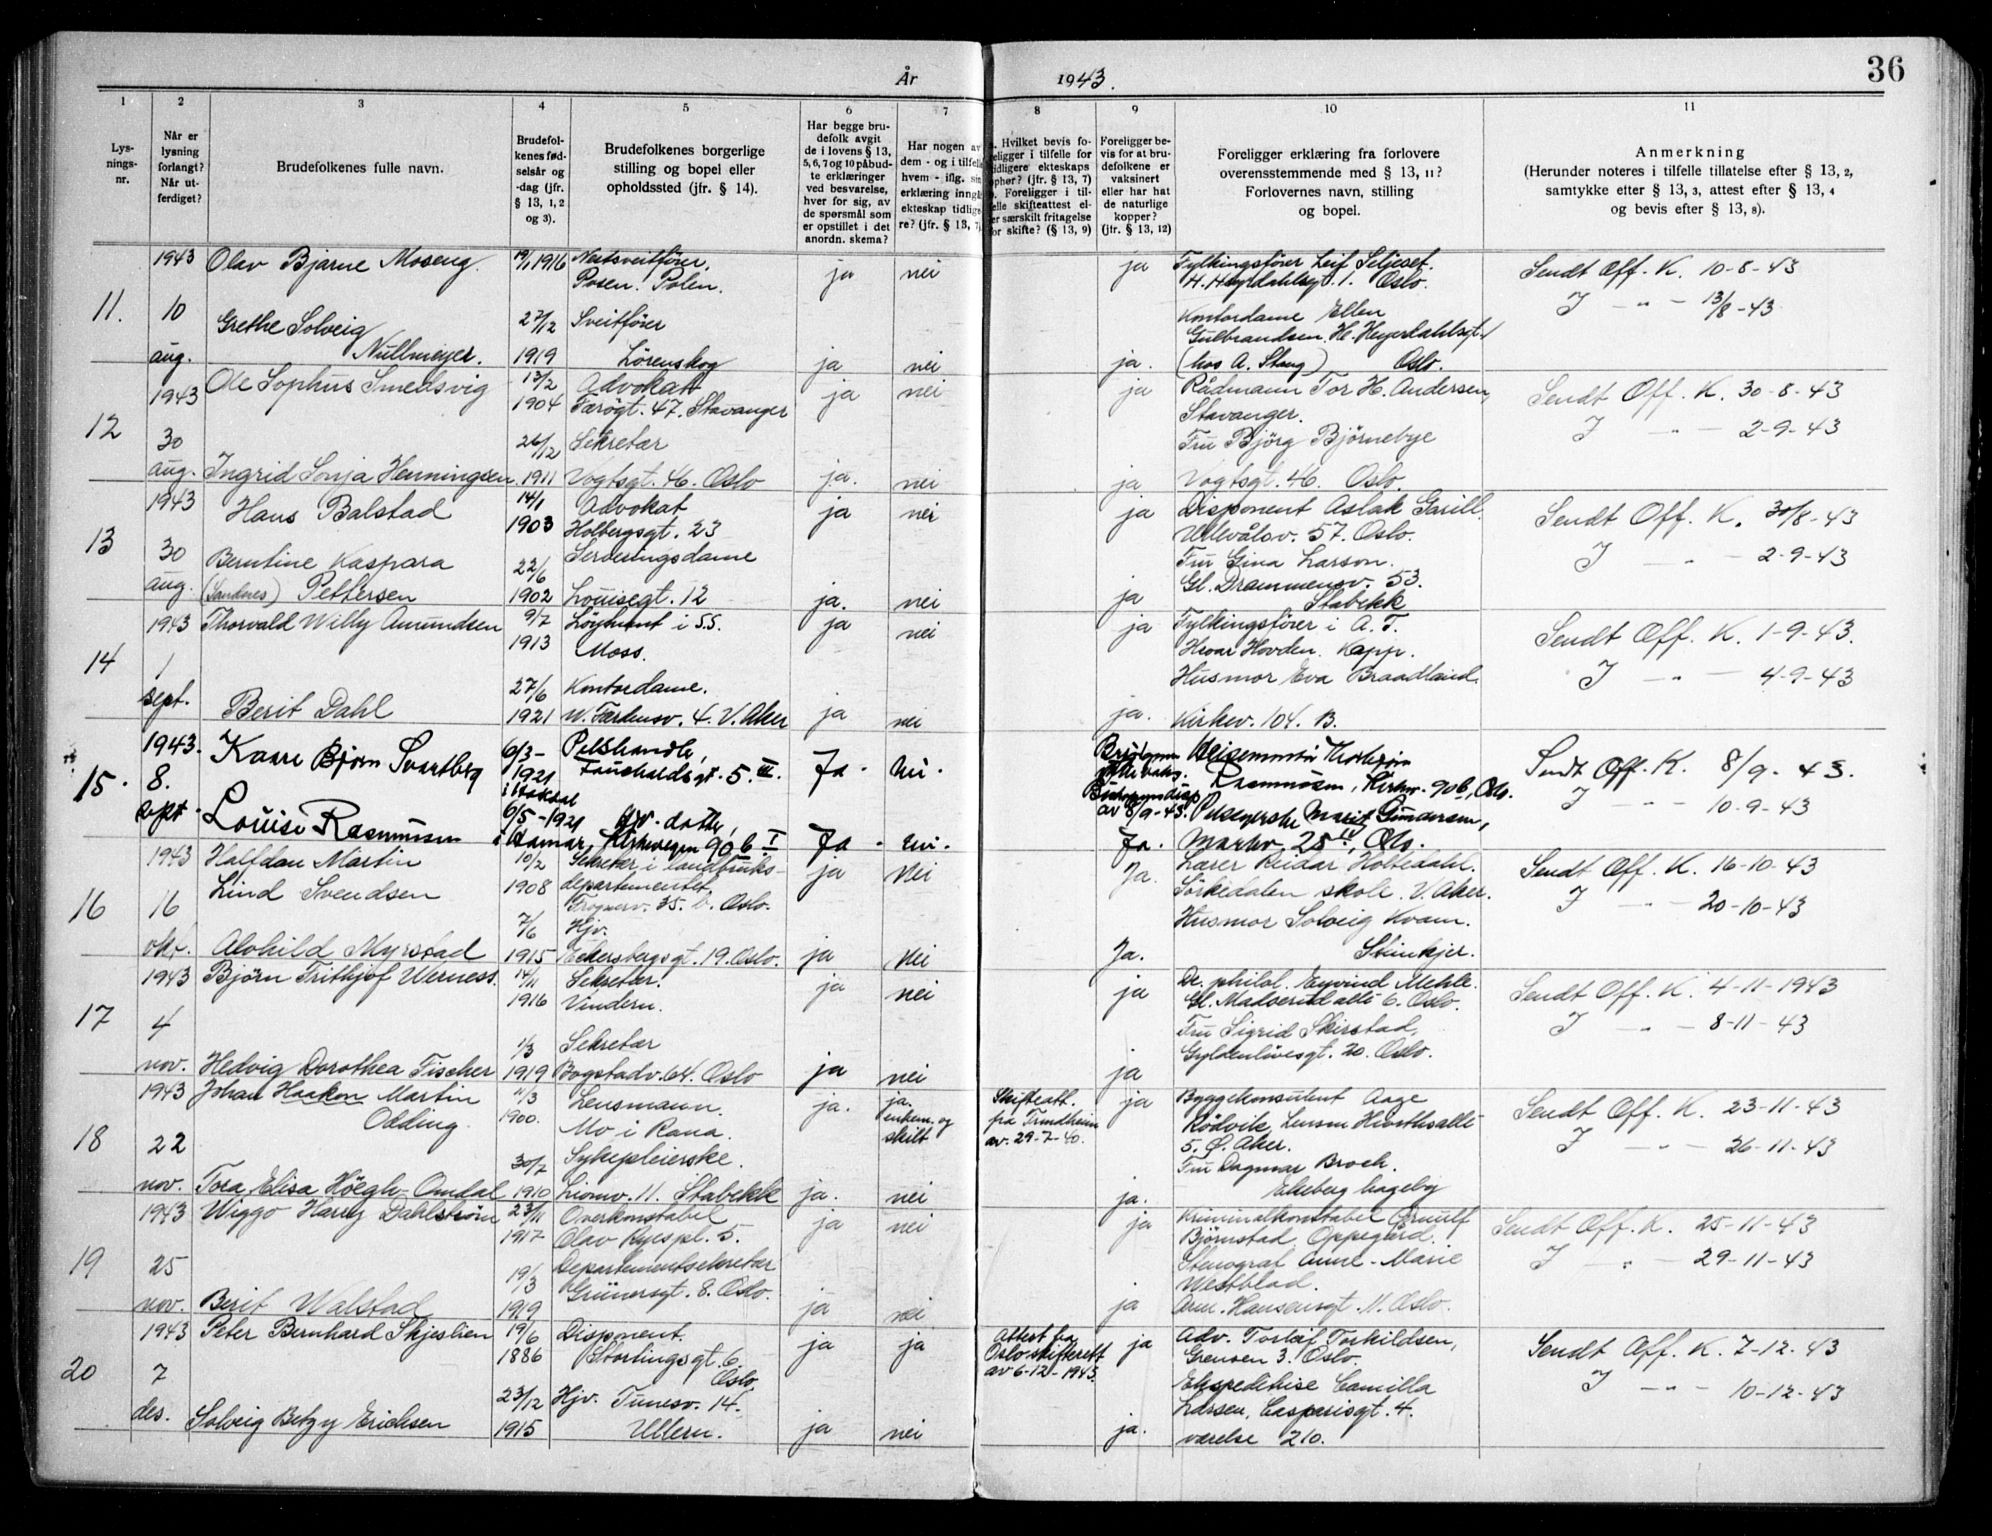 36
År 1943.
1 2 3 4 5 6 7 8 9 10 11
Lys-
nings-
nr.
Når er
lysning
forlangt?
Når ut-
ferdiget?
Brudefolkenes fulle navn.
Brudefol-
kenes fød-
selsår og
-dag (jfr.
§ 13, 1, 2
og 3).
Brudefolkenes borgerlige
stilling og bopel eller
opholdssted (jfr. § 14).
Har begge bru-
defolk avgit
de i lovens § 13,
5, 6, 7 og 10 påbud-
te erklæringer
ved besvarelse,
hver for sig, av
de spørsmål som
er opstillet i det
anordn. skema?
Har nogen av
dem - og i tilfelle
hvem - iflg. sin
erklæring inngå
ekteskap tidlige
re? (jfr. § 13, 7)
Hvilket bevis fo-
religger i tilfelle for
tidligere ekteskaps
ophør? (jfr. § 13, 7)
Foreligger i til-
felle skifteattest el-
er særskilt fritagelse
for skifte? (§ 13, 9)
Foreligger be-
vis for at bru-
defolkene er
vaksinert
eller har hat
de naturlige
kopper?
(jfr. § 13, 12)
Foreligger erklæring fra forlovere
overensstemmende med § 13, 11?
Forlovernes navn, stilling
og bopel.
Anmerkning
(Herunder noteres i tilfelle tillatelse efter § 13, 2,
samtykke etter § 13, 3, attest efter § 13, 4
og bevis efter § 13, 8).
11.
1943
10
aug.
Olav Bjarne Moseng.
19/1 1916
Nestsveitfører,
Posen. Polen.
ja nei ja
Fylkingsfører Leif Seljeset.
H. Heyrdahlsgt. 1. Oslo.
Sendt Off. K. 10-8-43
J — " — 13/8-43
Grethe Solveig
Nullmeyer.
27/12
1919
Sveitfører
Lørenskog
ja nei ja.
Kontordame Ellen
Gulbrandsen. H. Heyerdahlsgt. 1
(hos A. Stang) Oslo.
12
1943
30
aug.
Ole Sophus Smedsvig
13/2
1904
Advokat
Færøgt. 47. Stavanger
ja nei ja
Rådmann Tor H. Andersen,
Stavanger.
Sendt Off. K. 30-8-43
J — " — 2-9-43
Ingrid Sonja Henningsen
26/12
1911
Sekretær
Vogtsgt. 46. Oslo
ja. nei ja
Fru Bjørg Bjørnebye
Vogtsgt. 46. Oslo.
13
1943
30
aug.
Hans Balstad
14/1
1903
Advokat
Holbergsgt. 23
ja nei ja
Disponent Aslak Garill.
Ullevålsv. 57. Oslo.
Sendt Off. K. 30/8-43
J — " — 2-9-43
Berntine Kaspara
(Sandnes) Pettersen
22/6
1902
Serveringsdame
Louisegt. 12
ja. nei ja
Fru Gina Larson.
Gl. Drammensv. 53.
Stabekk
14
1943
1
sept.
Thorvald Willy Amundsen
9/7
1913
Løytnant i SS.
Moss.
ja nei ja
Fylkingsfører i A.T.
Hovden. Kapp.
Sendt Off. K. 1-9-43.
J — " — 4-9-43
Berit Dahl
27/6
1921
Kontordame.
W. Færdensv. 4. V. Aker
ja nei ja.
Husmor Eva Braadland.
Kirkev. 104. B.
15.
1943.
8.
sept.
Kaare Bjørn Svartberg
6/3-
1921
Pelshandler,
Fauchaldsgt. 5. III.
Ja. nei.
Rasmussen, Kirkev. 90b, Oslo.
Sendt Off. K. 8/9-43.
J — " — 10-9-43
Louise Rasmussen
6/5-1921
i Hamar,
Kirkevegen 90 b I
Ja. nei. Ja.
av 8/9-43. Pleierske Marit Gundersen,
Markv. 25 IV, Oslo.
16
1943
16
okt.
Halfdan Martin
Lind Svendsen
10/2
1908
Sekretær i landbruks-
departementet,
Frognerv. 35. b. Oslo.
ja nei Ja.
Lærer Reidar Holtedahl.
Sørkedalen skole. V. Aker.
Sendt Off. K. 16-10-43
J — " — 20-10-43
Alvhild Myrstad
7/6
1915
Hjv.
Eckersbergsgt. 19. Oslo.
ja nei Ja.
Husmor Solveig Kvam.
Steinkjer.
17
1943
4
nov.
Bjørn Frithjof Werness.
14/11
1916
Sekretær.
Vindern.
ja nei ja
Dr. philol. Eyvind Mehle.
Gl. Madserud allé 6. Oslo.
Sendt Off. K. 4-11-1943
J — " — 8-11-43
Hedvig Dorothea Fischer
1/3
1919
Sekretær
Bogstadv. 64. Oslo
ja nei ja
Fru Sigrid Skirstad,
Gyldenløvesgt. 20. Oslo.
18
1943
22
nov.
Johan Haakon Martin
Odding.
11/3
1900.
Lensmann.
Mo i Rana.
ja.
ja.
enkem. og
skilt
Skifteatt.
fra Trondheim
av. 29-7-40.
ja
Byggekonsulent Aage
Rödvik, Lensm Hiorthsallé
5. Ø. Aker.
Sendt Off. K. 23-11-43
J — " — 26-11-43
Tora Elisa Höegh-Omdal
30/7
1910
Sykepleierske.
Liomv. 11. Stabekk
ja. nei ja.
Fru Dagmar Broch.
Ekeberg hageby
19
1943
25
nov.
Wiggo Harry Dahlstrøm
23/11
1917
Overkonstabel
Olav Ryes pl. 5.
ja nei ja
Kriminalkonstabel Ørnulf
Bjørnstad, Oppegård.
Sendt Off. K. 25-11-43
J — " — 29-11-43
Berit Walstad
19/3
1919
Departementsekretær
Grünersgt. 8. Oslo.
ja nei ja
Stenograf Anne-Marie
Westblad.
Arm. Hansensgt. 11. Oslo.
20
1943
7
des.
Peter Bernhard Skjeslien
19/6
1886
Disponent.
Stortingsgt. 6
Oslo
ja ja
Attest fra
Oslo skifterett
av 6-12-1943.
ja
Adv. Torleif Torkildsen,
Grensen 3. Oslo.
Sendt Off. K. 7-12-43
J — " — 10-12-43
Solveig Betzy Erichsen
23/12
1915
Hjv. Tunesv. 14.
Ullern.
ja nei ja.
Ekspeditrise Camilla
Larsen, Casparisgt. 4.
værelse 210.